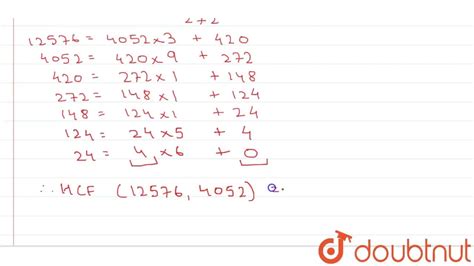 2+2
12576 = 4052 × 3 + 420
4052 = 420 × 9 + 272
420 = 272 × 1 + 148
272 = 148 × 1 + 124
148 = 124 × 1 + 24
124 = 24 × 5 + 4
24 = 4 × 6 + 0
∴ HCF (12576, 4052)
doubtnut